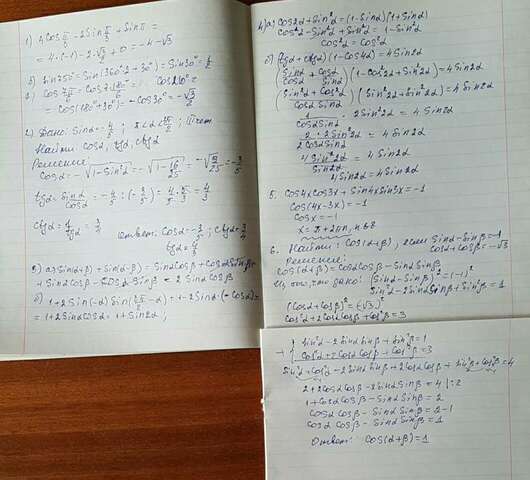 1) 4cosπ/6 - 2sinπ/3 + sinπ =
= 4·(-1) - 2·√3/2 + 0 = -4-√3
б) sin750° = sin(360°·2+30°) = sin30° = 1/2
cos210° =
= cos(180°+30°) = -cos30° = -√3/2
Найти cosα, tgα, ctgα
Решение:
cosα = -√1-sin²α = -√1-16/25 = -√9/25 = -3/5
tgα = sinα/cosα = -4/5 : (-3/5) = 4/5 · 5/3 = 4/3
ctgα = 1/tgα = 3/4
ответ: cosα = -3/5; ctgα = 3/4
tgα = 4/3
3) а) sin(α+β) + sin(α-β) = sinαcosβ + cosαsinβ +
+ sinαcosβ - cosαsinβ = 2sinαcosβ
б) 1+2sin(-α)sin(3π/2-α) = 1-2sinα·(-cosα) =
= 1+2sinαcosα = 1+sin2α;
4) а) cos2α + sin²α = (1-sinα)(1+sinα)
cos²α - sin²α + sin²α = 1-sin²α
cos²α = cos²α
б) (tgα + ctgα)(1-cos4α) = 4sin2α
(sinα/cosα + cosα/sinα)(1-cos²2α + sin²2α) = 4sin2α
(sin²α+cos²α/cosαsinα)(sin²2α + sin²2α) = 4sin2α
1/cosαsinα · 2sin²2α = 4sin2α
2·2sin²2α/2cosαsinα = 4sin2α
4sin²2α/sin2α = 4sin2α
4sin2α = 4sin2α
5. cos4xcos3x + sin4xsin3x = -1
cos(4x-3x) = -1
cosx = -1
x = π+2πn, n∈Z
6. Найти: cos(α+β), если sinα-sinβ = -1
cosα+cosβ = -√3
Решение:
cos(α+β) = cosαcosβ - sinαsinβ
(sinα-sinβ)² = (-1)²
sin²α - 2sinαsinβ + sin²β = 1
(cosα+cosβ)² = (-√3)²
cos²α + 2cosαcosβ + cos²β = 3
sin²α - 2sinαsinβ + sin²β = 1
→ cos²α + 2cosαcosβ + cos²β = 3
sin²α + cos²α - 2sinαsinβ + 2cosαcosβ + sin²β + cos²β = 4
2 + 2cosαcosβ - 2sinαsinβ = 4 |:2
1 + cosαcosβ - sinαsinβ = 2
cosαcosβ - sinαsinβ = 2-1
cosαcosβ - sinαsinβ = 1
Ответ: cos(α+β) = 1